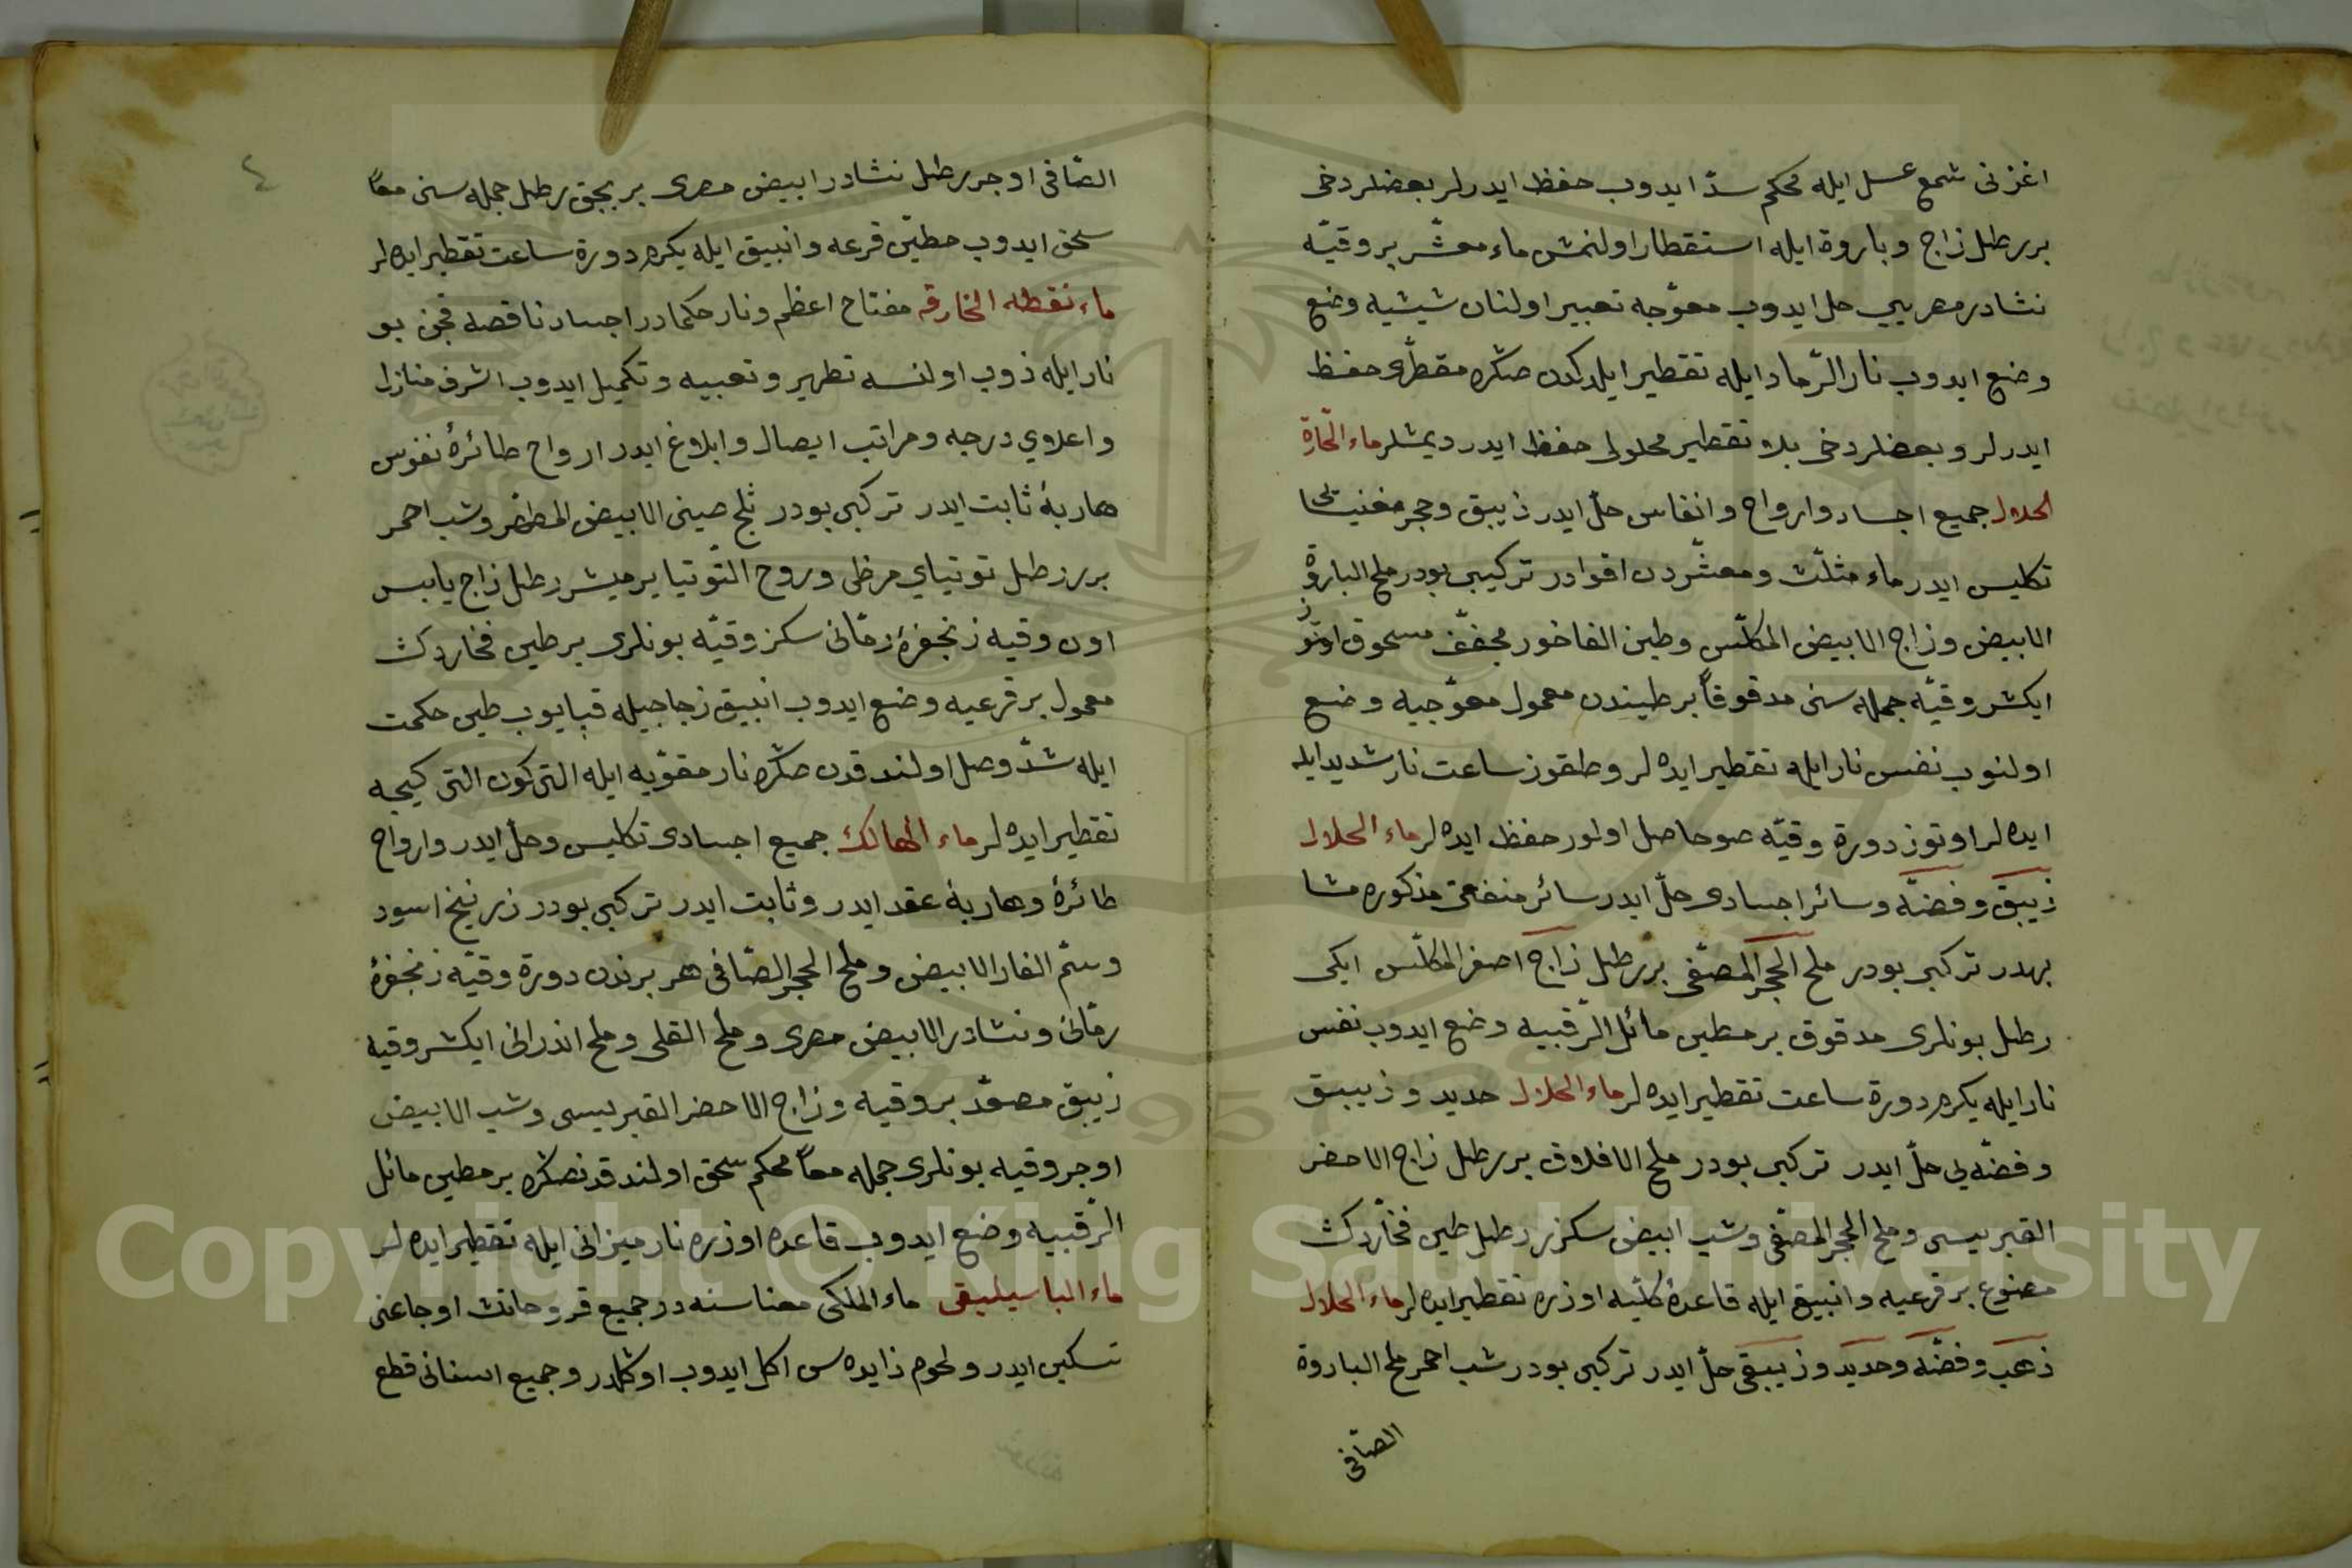 اغزنی شمع عسل ایله محکم سدّ ایدوب حفظ ایدرلر بعضلر دخی
برر رطل زاج وباروة ایله استقطار اولنمش ماء معشّر بر وقیّه
نشادر مصریی حل ایدوب معوّجه تعبیر اولنان شیشیه وضع
وضع ایدوب نار الرّماد ایله تقطیر ایلدکدن صکره مقطّری حفظ
ایدرلر وبعضلر دخی بلا تقطیر محلولی حفظ ایدر دیمشلر ماء الحارّة
الحلال جمیع اجساد وارواح وانفاس حلّ ایدر ذیبق وحجر مغنیسا
تکلیس ایدر ماء مثلّث ومعشّردن اقوادر ترکیبی بودر ملح الباروة
الابیض وزاج الابیض المکلّس وطین الفاخور مجفّف مسحوق اوتوز
ایکشر وقیّه جمله سنی مدقوقاً بر طیندن معمول معوّجیه وضع
اولنوب نفس نار ایله تقطیر ایده لر وطقوز ساعت نار شدید ایله
ایده لر اوتوز دورة وقیّه صو حاصل اولور حفظ ایده لر ماء الحلال
ذیبق وفضّه وسائر اجسادی حلّ ایدر سائر منفعتی مذکوره مشا
بهدر ترکبی بودر ملح الحجر المصفّی برر رطل زاج اصفر المکلّس ایکی
رطل بونلری مدقوق بر مطین مائل الرّقبیه وضع ایدوب نفس
نار ایله یکرمی دورة ساعت تقطیر ایده لر ماء الحلال حدید وذیبق
وفضّه یی حلّ ایدر ترکبی بودر ملح الافلاق برر رطل زاج الاخضر
القبریسی وملح الحجر المصفّی وشب ابیض سکزر رطل طین فخّاردکث
مصنوع بر قرعیه وانبیق ایله قاعدۀ کلّیه اوزره تقطیر ایده لر ماء الحلال
ذهب وفضّه وحدید وزیبقی حلّ ایدر ترکبی بودر شب احمر ملح الباروة
الصّافی
٤
الصّافی اوچر رطل نشادر ابیض مصری بر بچق رطل جمله سنی معاً
سحق ایدوب مطیّن قرعه وانبیق ایله یکرمی دورة ساعت تقطیر ایده لر
ماء نقطه الخارقه مفتاح اعظم ونار حکمادر اجساد ناقصه قچن بو
نار ایله ذوب اولنسه تطهیر وتعبیه وتکمیل ایدوب اشرف منازل
واعلای درجه ومراتب ایصال وابلاغ ایدر ارواح طائرۀ نفوس
هاربۀ ثابت ایدر ترکبی بودر ثلج صینی الابیض المطهّر وشب احمر
برر رطل توتیای مرظی وروح التّوتیا یرمیشر رطل زاج یابس
اون وقیه زنجفرۀ رمّانی سکز وقیّه بونلری بر طین فخاردکث
معمول بر قرعیه وضع ایدوب انبیق زجاجیله قپایوب طین حکمت
ایله شدّ وصل اولندقدن صکره نار مقوّیه ایله التی کون التی کیجه
تقطیر ایده لر ماء الهالک جمیع اجسادی تکلیس وحلّ ایدر وارواح
طائرۀ وهاربۀ عقد ایدر وثابت ایدر ترکبی بودر زرنیخ اسود
وسّم الفار الابیض وملح الحجر الصّافی هر برندن دورة وقیّه زنجفرۀ
رمّانی ونشادر الابیض مصری وملح القلی وملح اندرانی ایکشر وقیه
زیبق مصعّد بر وقیه وزاج الاخضر القبریسی وشب الابیض
اوچر وقیه بونلری جمله معاً محکم سحق اولندقدنصکره بر مطین مائل
الرّقبیه وضع ایدوب قاعده اوزره نار میزانی ایله تقطیر ایده لر
ماء الباسیلیقی ماء الملکی معناسنه در جمیع قروحانک اوجاعنی
تسکین ایدر ولحوم زایده سی اکل ایدوب اوکلدر وجمیع اسنانی قطع